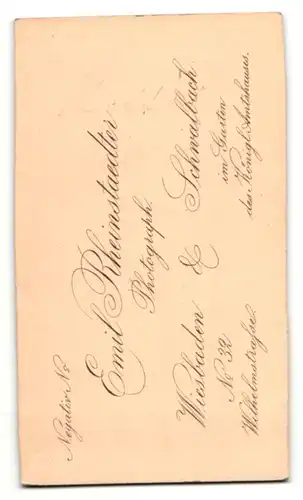 Negativ No
Emil Rheinstaedter
Photograph.
Wiesbaden & Schwalbach
No 32
Wilhelmstrasse.
im Garten
des Königl. Amtshauses.